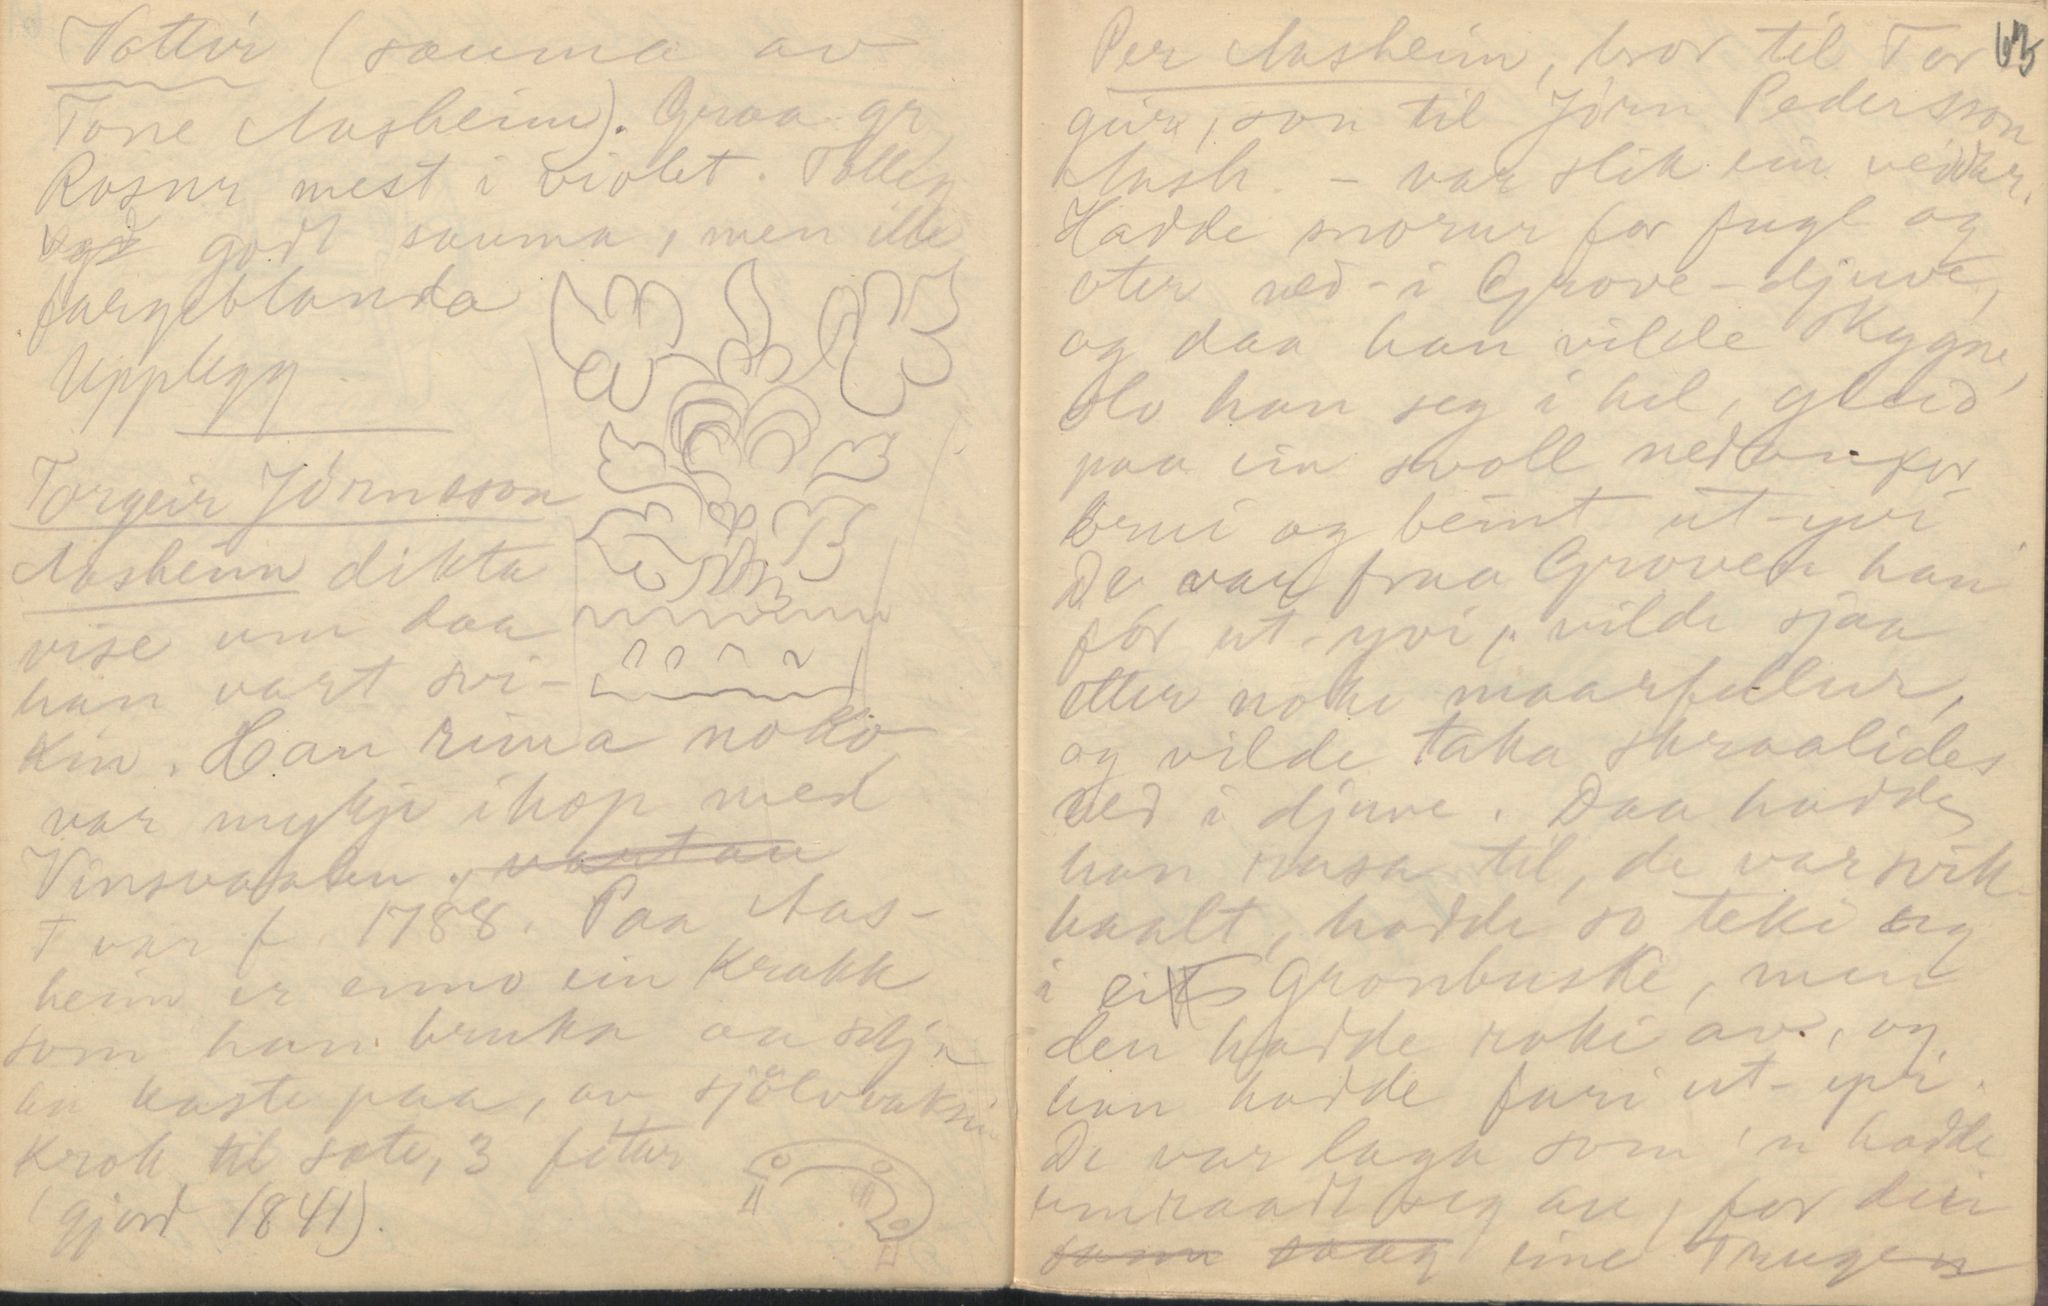 Vottir (sauma av
Tone Aasheim). Graa gr.
Rosur mest i violet.
godt sauma, men ille
fargeblanda
Upplegg
Torgeir Jörnsson
Aasheim dikta
vise um daa
han vart svi-
kin. Han rima noko
var mykje ihop med
Vinsvaalen. vart au
T var f. 1788. Paa Aas-
heim er enno ein Krakk
som han bruka aa
an kaste paa, av sjölvvaksin
Krok til sæte, 3 fötur
(gjord 1841).
63
Per Aasheim, bror til Tor
geir, son til Jörn Pedersson
Aash. - var slik ein veidar.
Hadde snorur for fugl og
oter ned-i Grove-djuve,
og daa han vilde skygne,
slo han seg i hel, gleid
paa ein svoll nedanfor
brui og beint ut-yvi
De var fraa Groven han
för ut-yvi, vilde sjaa
etter noke maarfellur,
og vilde taka skraalides
ned i djuve. Daa hadde
han rusa til, de var svik-
haalt, hadde so teki seg
i ein Gronbuske, men
den hadde roki av, og
han hadde fari ut-yvi.
De var laga som 'n hadde
umraadt seg au, for den
som saag eine Trugen